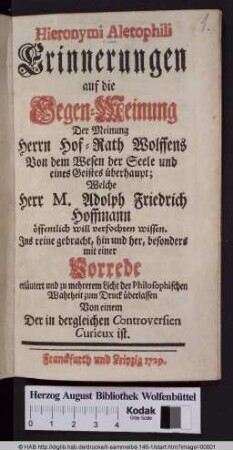 1.
Hieronymi Aletophili
Erinnerungen
auf die
Gegen-Meinung
Der Meinung
Herrn Hof-Rath Wolffens
Von dem Wesen der Seele und
eines Geistes überhaupt;
Welche
Herr M. Adolph Friedrich
Hoffmann
öffentlich will verfochten wissen.
Ins reine gebracht, hin und her, besonders
mit einer
Vorrede
erläutert und zu mehrerem Licht der Philosophischen
Wahrheit zum Druck überlassen
Von einem
Der in dergleichen Controversien
Curieux ist.
Franckfurth und Leipzig 1729.
Herzog August Bibliothek Wolfenbüttel
Kodak
Gray Scale
© HAB http://diglib.hab.de/drucke/li-sammelbd-146-1/start.htm?image=00001